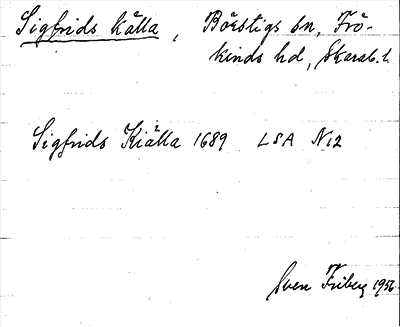 Sigfrids källa, Börstigs sn, Frö-
kinds hd, Skarab. l.
Sigfrids Kiälla 1689 LSA N12
Sven Friberg 1956